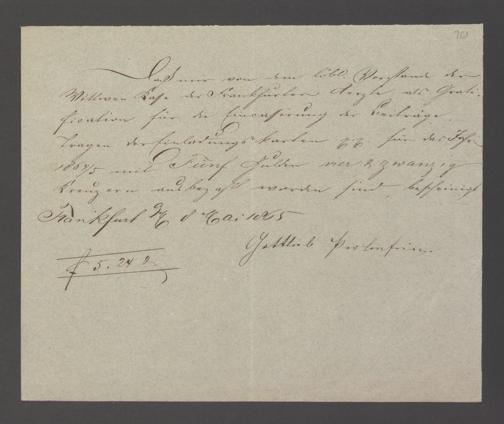 701
Daß mir von dem löbl. Vorstande der
Wittwen Kasse der Frankfurter Aerzte als Grati-
fication für die Einkassierung der Beiträge,
tragen der Einladungskarten für das Jahr
1864/5 mit Fünf Gulden vier & zwanzig
Kreuzern ausbezahlt worden sind, bescheinigt
Frankfurt a/M d 8 Mai 1865
Gottlieb
f 5. 24 x